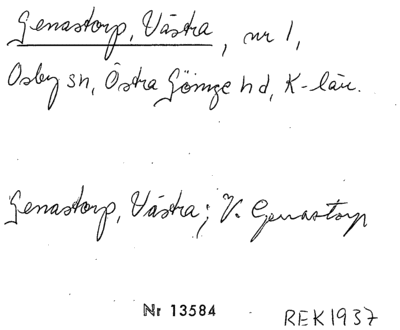 Genastorp, Västra, nr 1,
Osby sn, Östra Göinge hd, K-län.
Genastorp, Västra; V. Genastorp
Nr 13584
REK1937